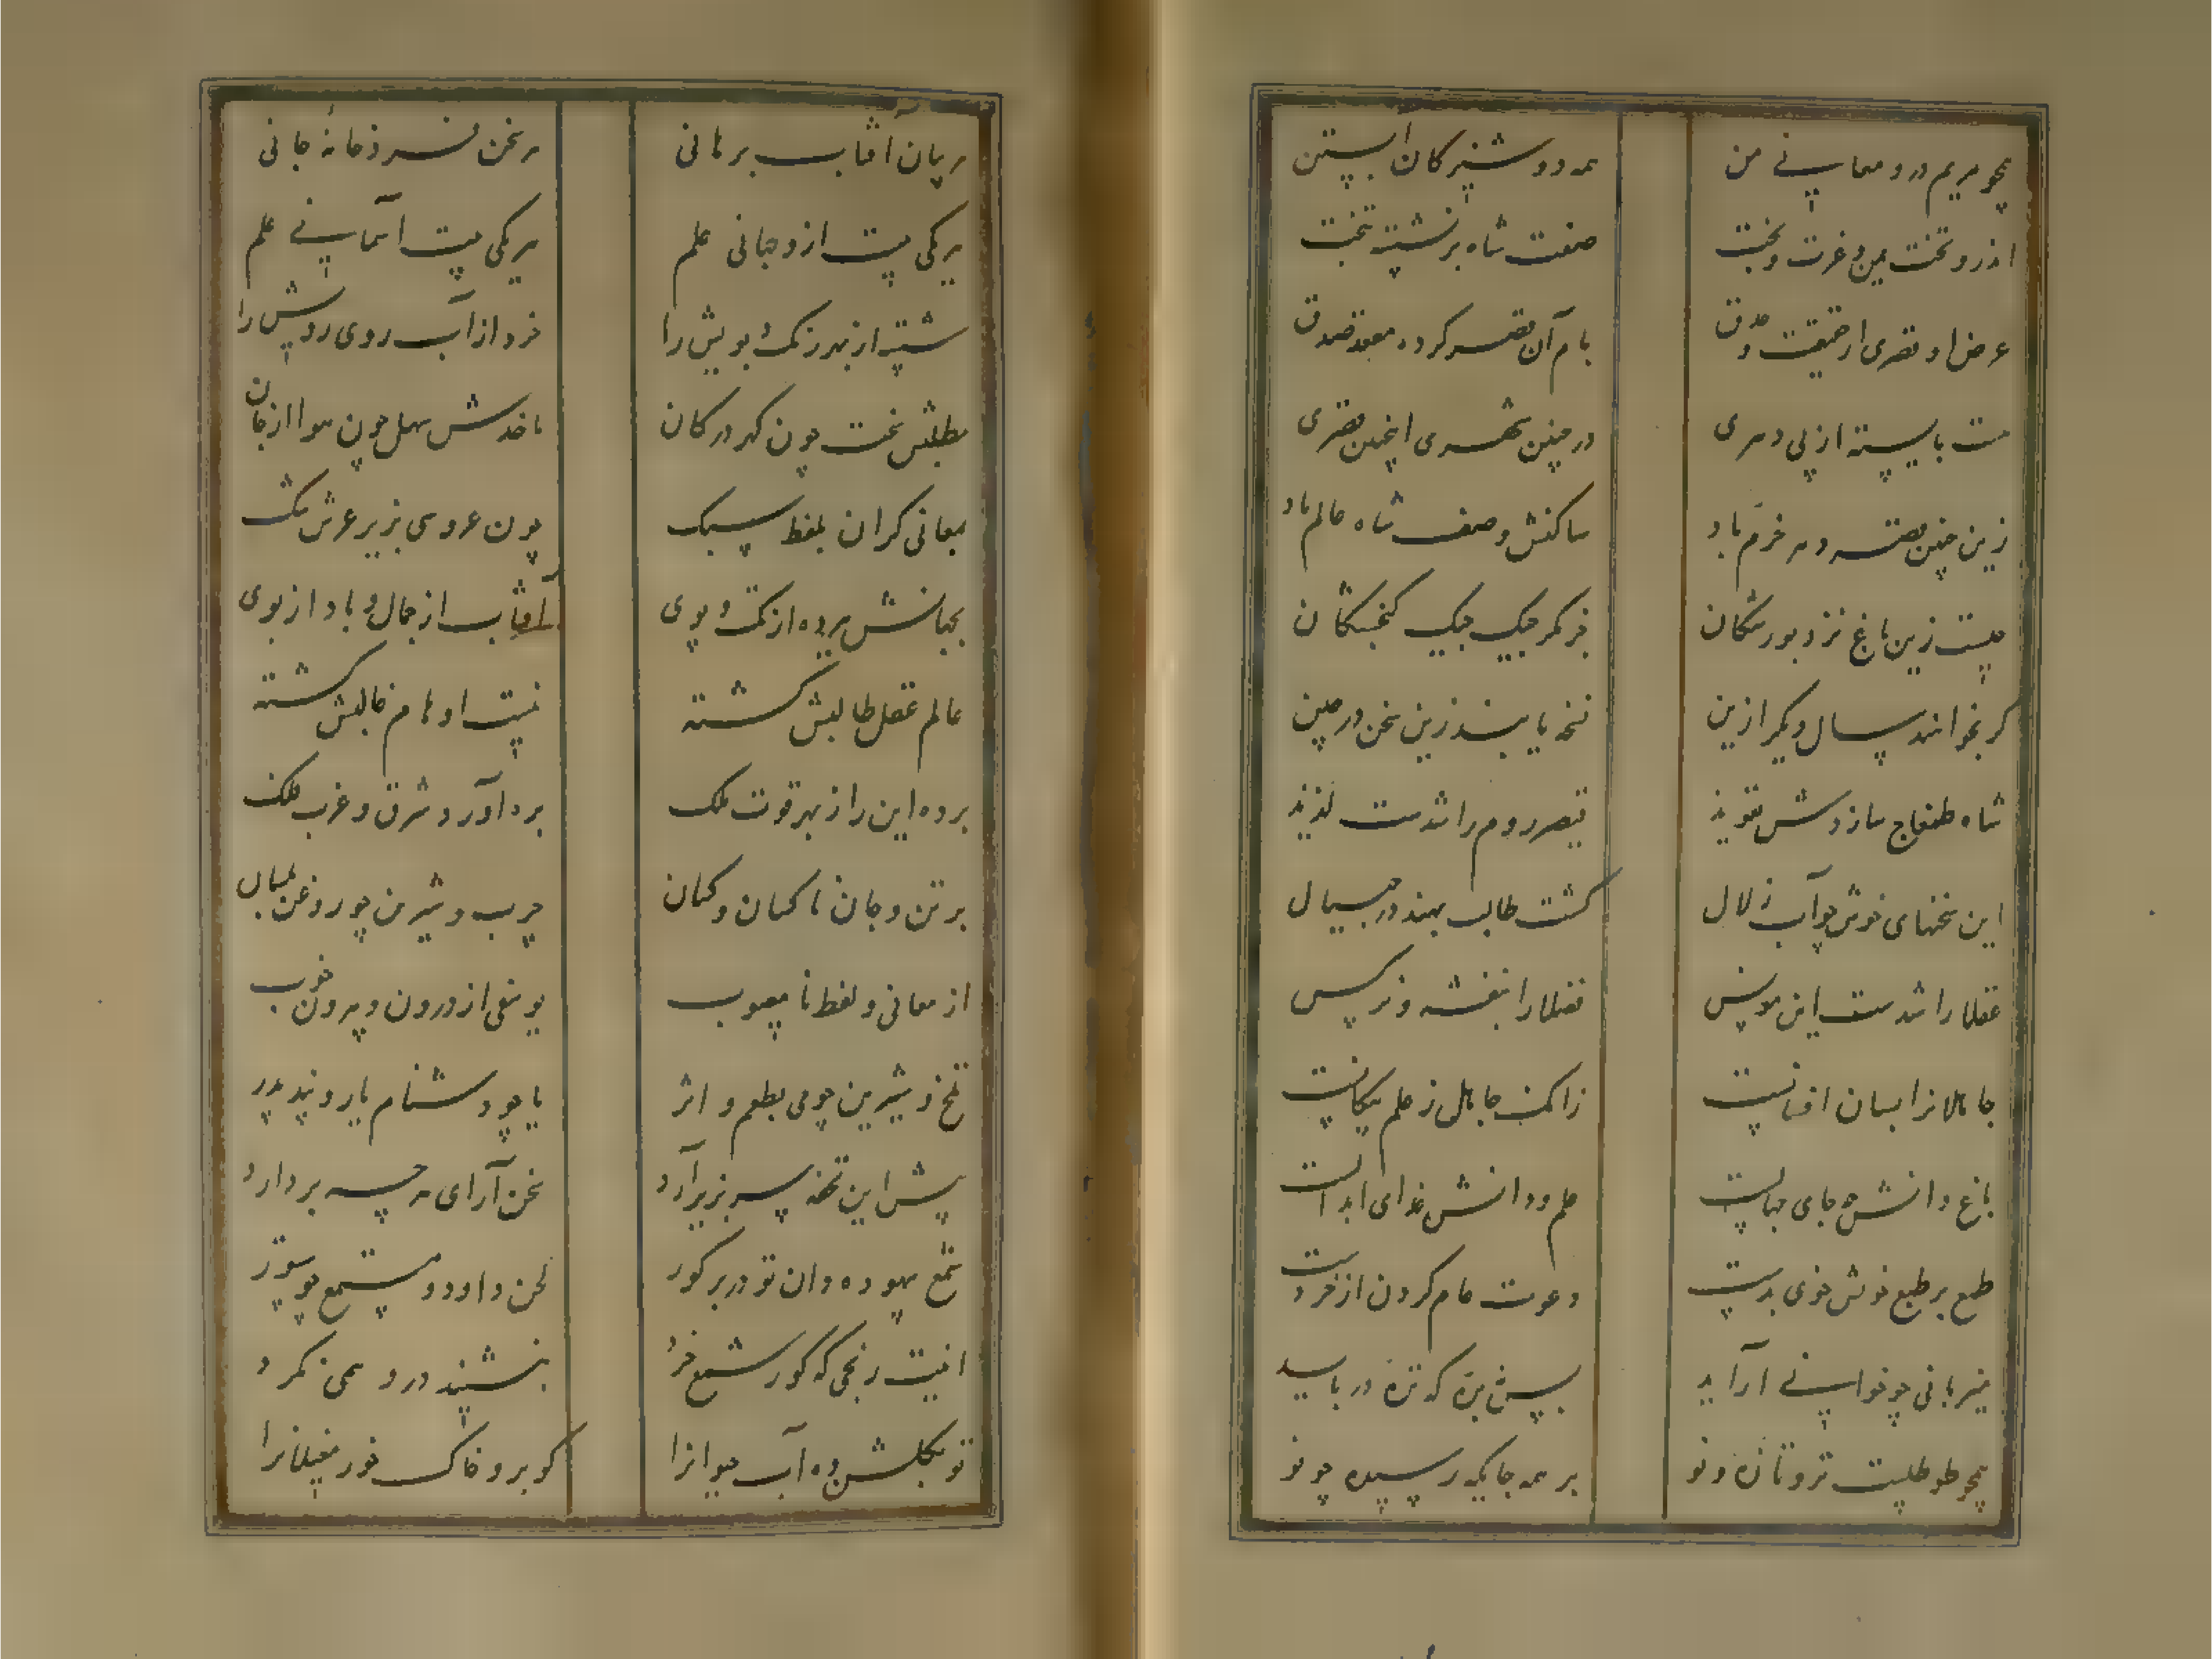 همچو مریم درو معانی من همه دوشیزگان آبستن
اندرو تخت یمن و عزت و بخت صفت شاه برنشسته به تخت
عرض او قصری از حقیقت و صدق بام آن قصر کرده مقعد صدق
هست بایسته از پی دهری در چنین شهری اینچنین قصری
زین چنین قصر دهر خرم باد ساکنش وصف شاه عالم باد
چیست زین باغ نزد بورشکان جز که جیک جیک گنجشکان
گر بخوانند سال دیگر ازین نخه یابند زین سخن در چین
شاه طمغاج سازدش تعویذ قیصر روم را شدست لذیذ
این سخنهای خوش چو آب زلال گشت طالب بهند در جیبال
عقلا را شدست این مونس فضلا را بنفشه و نرکس
جاهلانرا بسان افسانست زانک جاهل ز علم بیکانست
باغ دانش چه جای جهالست علم و دانش غذای ابدالست
طبع بر طبع خوش خوی بدست دعوت عام کردن از خردست
میزبانی چو خوانی آراید بیش بزه که تره درباید
همچو طوطیست تر و تازه و نو بر همه جایکه رسیده چو نو
هر بیان آفتاب برهانی هر سخن نسر ز خانهٔ جانی
هر یکی بیت ازو جهانی علم هر یکی بیت آسمانی علم
شسته از بهر رنک و بویش را خرد از آب روی رویش را
مطلبش سخت چون گهر در کان ماخذش سهل چون هوا از جان
معانی گران بلفظ سبک چون عروسی بزیر عرش تنک
بجهانش برده از تک و پوی آفتاب از جمال و باد از بوی
عالم عقل طالبش گشته نیست اوهام غالبش گشته
برده این را ز بهر قوت ملک برد آورد شرق و غرب فلک
بر تن و جان ناکسان و کسان چرب و شیرین چو روغن بلسان
از معانی و لفظ نامعیوب یوسفی از درون و بیرون خوب
تلخ و شیرین چو می بطعم و اثر یا چو دشنام یار و پند پدر
پیش این تحفه سر بزیر آرد سخن آرای هر چه سر بردارد
شمع بیهوده دان تو در بر کور لحن داود و مستمع چو ستور
اینت رنجی که کور شمع خرد بنشیند درو همی نکرد
تو بگلشن ده آب حیوانرا گو برو خاک خور مغیلانرا